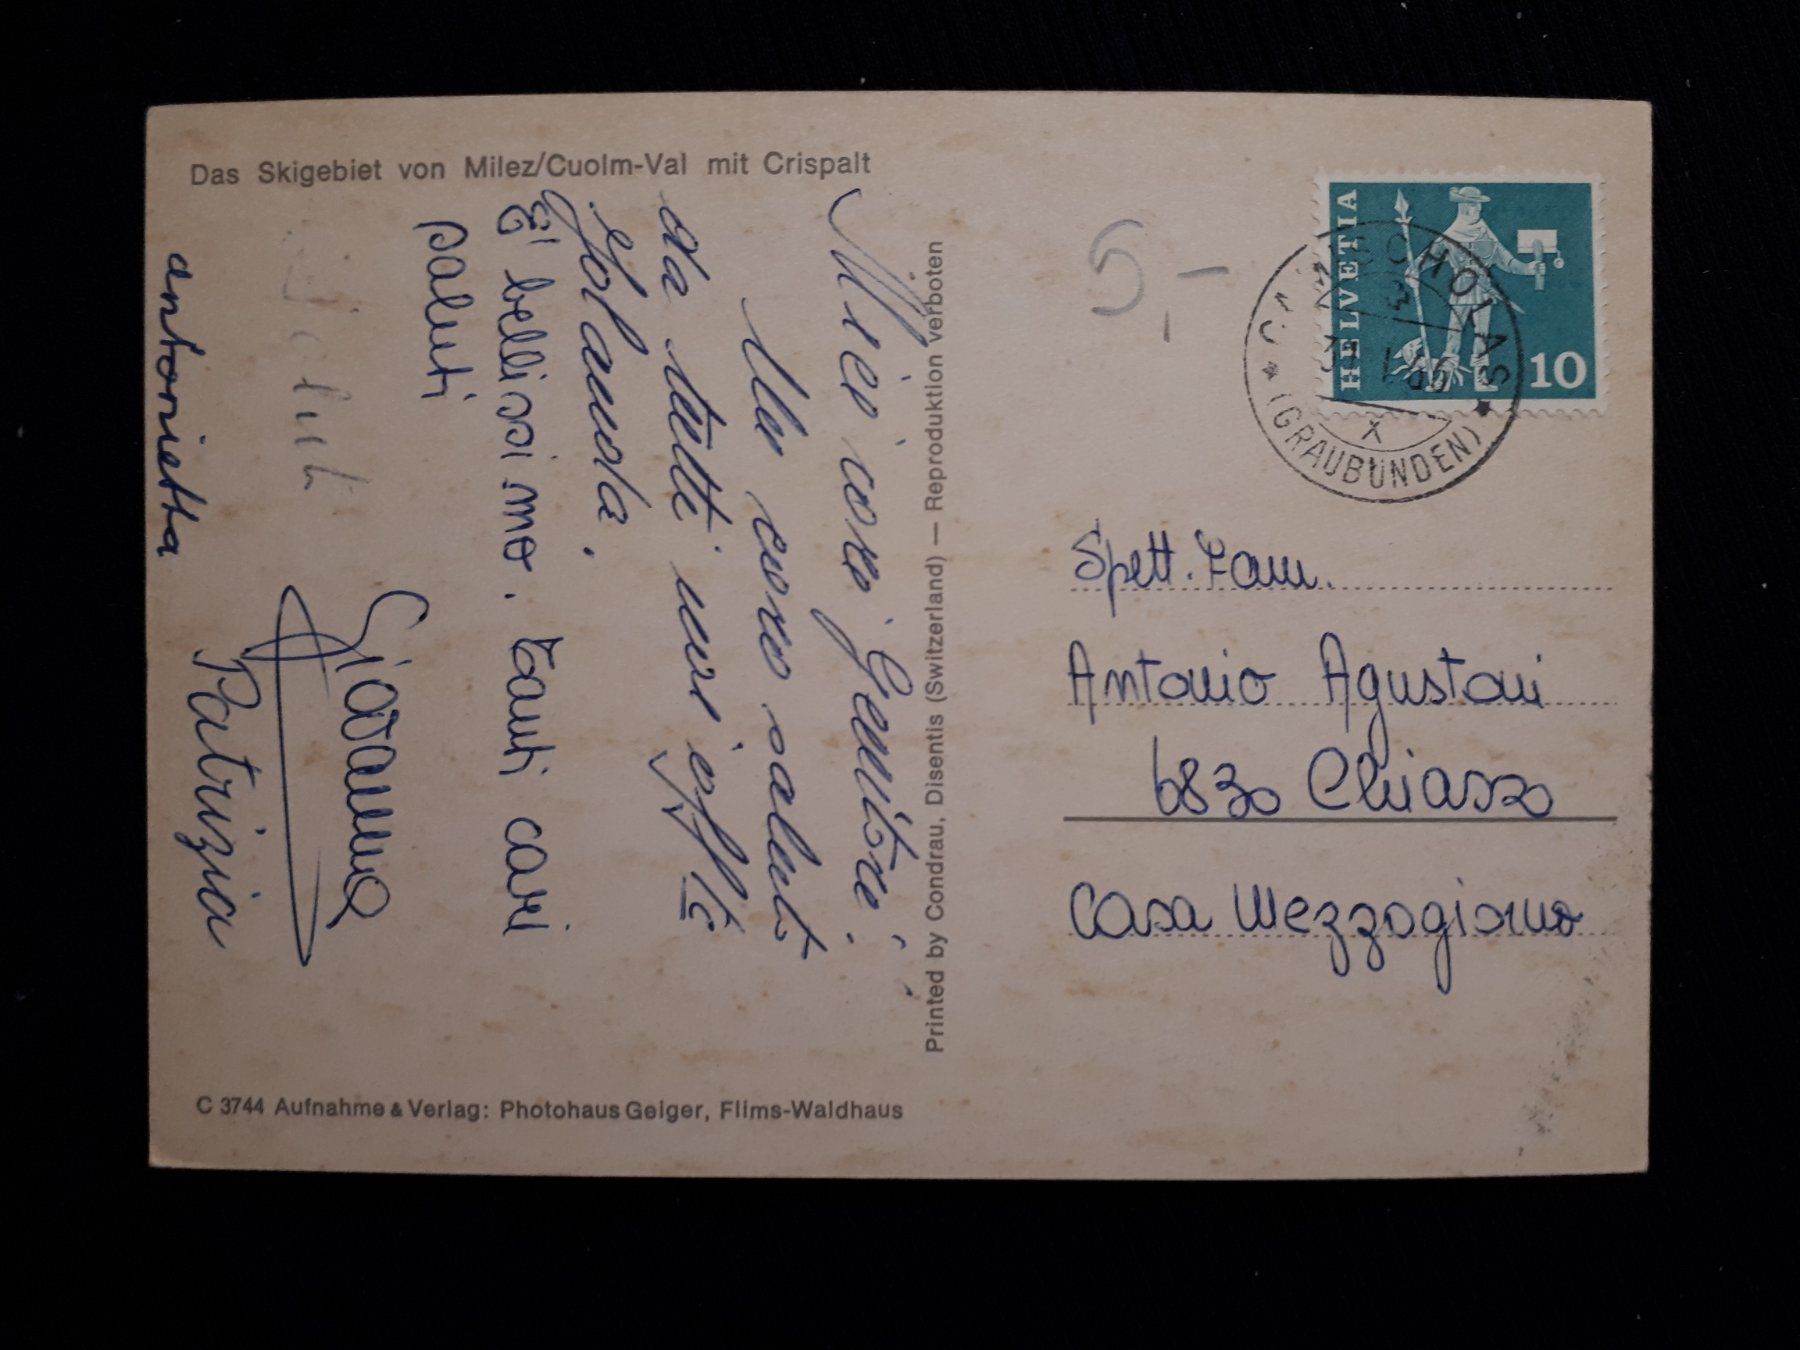 Das Skigebiet von Milez/Cuolm-Val mit Crispalt
Miei cari Genitori,
Un caro saluto
da tutti noi
Jolanda.
E' bellissimo. Tanti cari
saluti
Giovanna
Patrizia
antonietta
Printed by Condrau, Disentis (Switzerland) — Reproduktion verboten
5.-
HELVETIA
10
(GRAUBÜNDEN)
Spett. Fam.
Antonio Agustoni
6830 Chiasso
Casa Mezzogiorno
C 3744 Aufnahme & Verlag: Photohaus Geiger, Flims-Waldhaus